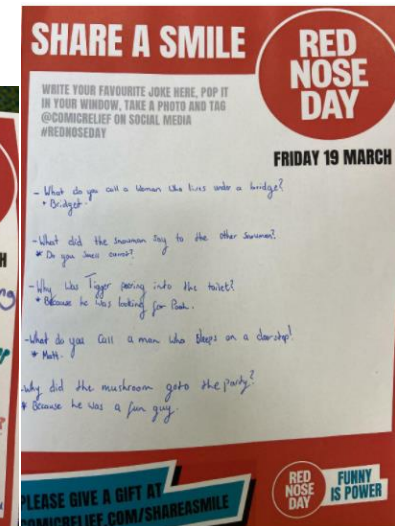 SHARE A SMILE
RED
NOSE
DAY
WRITE YOUR FAVOURITE JOKE HERE, POP IT
IN YOUR WINDOW, TAKE A PHOTO AND TAG
@COMICRELIEF ON SOCIAL MEDIA
#REDNOSEDAY
FRIDAY 19 MARCH
- What do you call a woman who lives under a bridge?
* Bridget.
- What did the snowman say to the other snowman?
* Do you smell carrots?
- Why was Tigger peering into the toilet?
* Because he was looking for Pooh.
- What do you call a man who sleeps on a doorstep?
* Matt.
- Why did the mushroom goto the party?
* Because he was a fun guy.
PLEASE GIVE A GIFT AT
COMICRELIEF.COM/SHAREASMILE
RED
NOSE
DAY
FUNNY
IS POWER